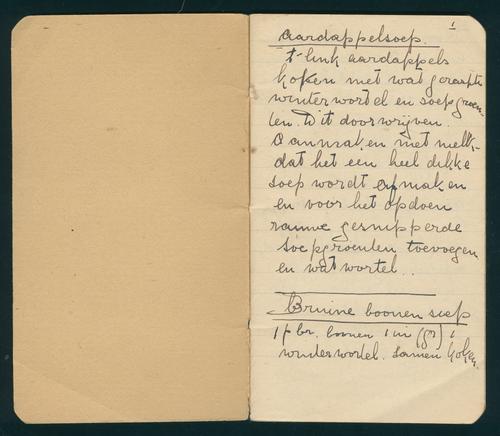 1
Aardappelsoep.
aardappels
koken met wat geraspte
winterwortel en soepgroen-
ten. Dit doorwrijven.
Aanmaken met melk
dat het een heel dikke
soep wordt afmaken
en voor het opdoen
rauwe gesnipperde
soepgroenten toevoegen
en wat wortel..
Bruine boonen soep
1 p br. boonen 1 ui (gr) 1
winterwortel. samen koken.